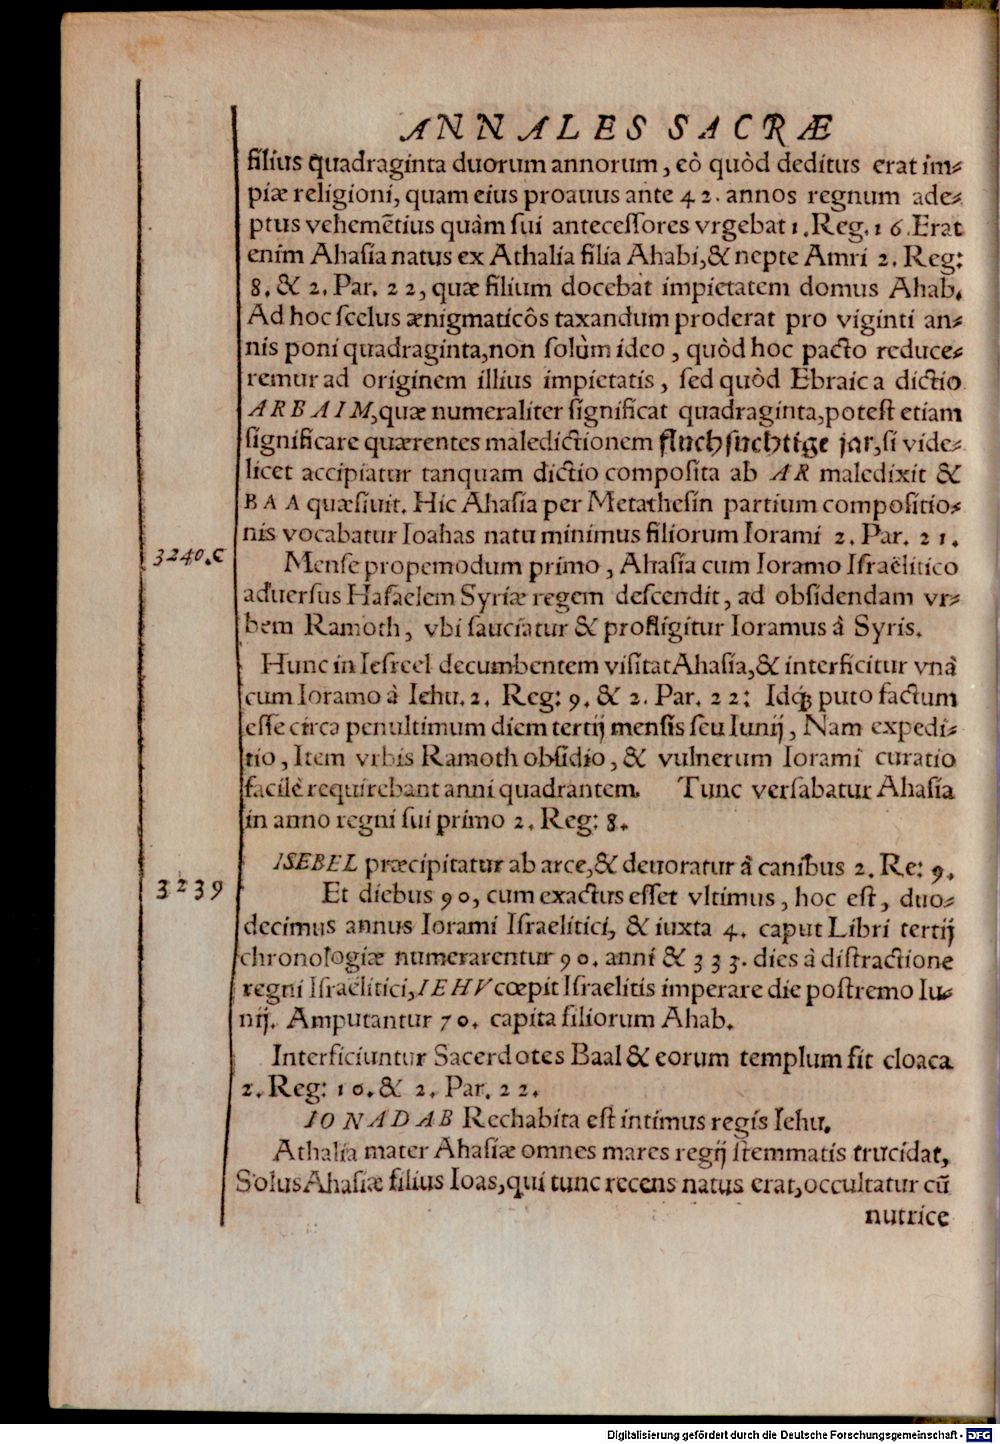 ANNALES SACRÆ
filius quadraginta duorum annorum, eò quòd deditus erat im⸗
piæ religioni, quam eius proauus ante 42. annos regnum ade⸗
ptus vehemẽtius quàm sui antecessores vrgebat 1. Reg. 16. Erat
enim Ahasia natus ex Athalia filia Ahabi, & nepte Amri 2. Reg:
8. & 2. Par. 22, quæ filium docebat impietatem domus Ahab.
Ad hoc scelus ænigmaticôs taxandum proderat pro viginti an⸗
nis poni quadraginta, non solùm ideo, quòd hoc pacto reduce⸗
remur ad originem illius impietatis, sed quòd Ebraica dictio
ARBAIM, quæ numeraliter significat quadraginta, potest etiam
significare quærentes maledictionem fluchsuchtige jar, si vide⸗
licet accipiatur tanquam dictio composita ab AR maledixit &
BAA quæsiuit. Hic Ahasia per Metathesin partium compositio⸗
nis vocabatur Ioahas natu minimus filiorum Iorami 2. Par. 21.
3240.C
Mense propemodum primo, Ahasia cum Ioramo Israëlitico
aduersus Hasaelem Syriæ regem descendit, ad obsidendam vr⸗
bem Ramoth, vbi sauciatur & profligitur Ioramus â Syris.
Hunc in Iesreel decumbentem visitat Ahasia, & interficitur vnâ
cum Ioramo à Iehu. 2. Reg: 9. & 2. Par. 22: Idq́; puto factum
esse circa penultimum diem tertij mensis seu Iunij, Nam expedi⸗
tio, Item vrbis Ramoth obsidio, & vulnerum Iorami curatio
facilè requirebant anni quadrantem. Tunc versabatur Ahasia
in anno regni sui primo 2. Reg: 8.
ISEBEL præcipitatur ab arce, & deuoratur â canibus 2. Re: 9.
3239
Et diebus 90, cum exactus esset vltimus, hoc est, duo⸗
decimus annus Iorami Israelitici, & iuxta 4. caput Libri tertij
chronologiæ numerarentur 90. anni & 333. dies à distractione
regni Israëlitici, IEHV cœpit Israelitis imperare die postremo Iu⸗
nij. Amputantur 70. capita filiorum Ahab.
Interficiuntur Sacerdotes Baal & eorum templum fit cloaca
2. Reg: 10. & 2. Par. 22.
IONADAB Rechabita est intimus regis Iehu.
Athalia mater Ahasiæ omnes mares regij stemmatis trucidat,
Solus Ahasiæ filius Ioas, qui tunc recens natus erat, occultatur cũ
nutrice
Digitalisierung gefördert durch die Deutsche Forschungsgemeinschaft - DFG